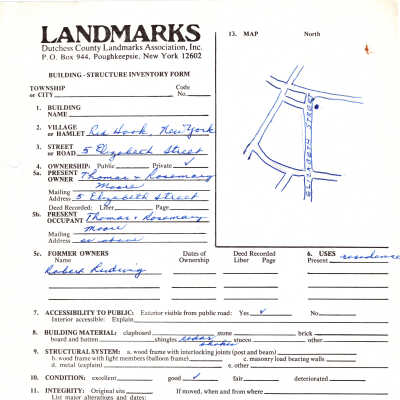 LANDMARKS
Dutchess County Landmarks Association, Inc.
P. O. Box 944, Poughkeepsie, New York 12602
BUILDING - STRUCTURE INVENTORY FORM
TOWNSHIP or CITY Code No.
1. BUILDING NAME
2. VILLAGE or HAMLET Red Hook, New York
3. STREET or ROAD 5 Elizabeth Street
4. OWNERSHIP: Public Private ✓
5a. PRESENT OWNER Thomas + Rosemary
Moore
Mailing Address 5 Elizabeth Street
Deed Recorded: Liber Page
5b. PRESENT OCCUPANT Thomas + Rosemary
Moore
Mailing Address as above
13. MAP North
ELIZABETH STREET
5c. FORMER OWNERS Name Dates of Ownership Deed Recorded Liber Page 6. USES Present residence
Robert Ludwig
7. ACCESSIBILITY TO PUBLIC: Exterior visible from public road: Yes ✓ No
Interior accessible: Explain
8. BUILDING MATERIAL: clapboard stone brick
board and batten shingles cedar shakes stucco other
9. STRUCTURAL SYSTEM: a. wood frame with interlocking joints (post and beam)
b. wood frame with light members (balloon frame) c. masonry load bearing walls
d. metal (explain) e. other
10. CONDITION: excellent good ✓ fair deteriorated
11. INTEGRITY: Original site If moved, when and from where
List major alterations and dates: